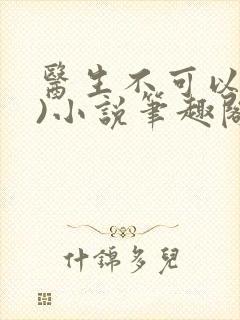 醫生不可以
)小說筆趣閣
什錦多兒